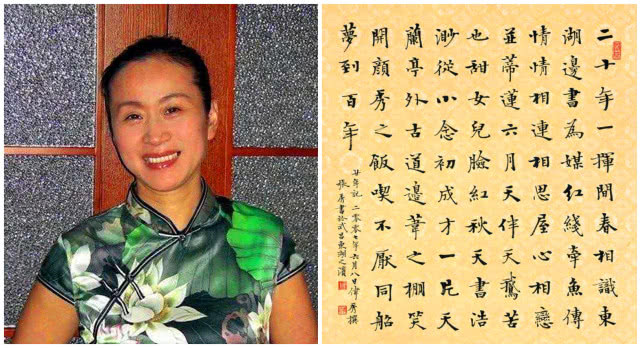 二十年一揮間春相識東
湖邊書為媒紅綫牽魚傳
情情相連相思屋心相戀
並蒂蓮六月天伴天鵞苦
也甜女兒臉紅秋天書浩
渺從小念初成才一片天
蘭亭外古道邊葦之棚笑
開顏秀之飯喫不厭同船
夢到百年
廿年記二零零七年六月八日偉秀撰
張秀書於武昌東湖之濱